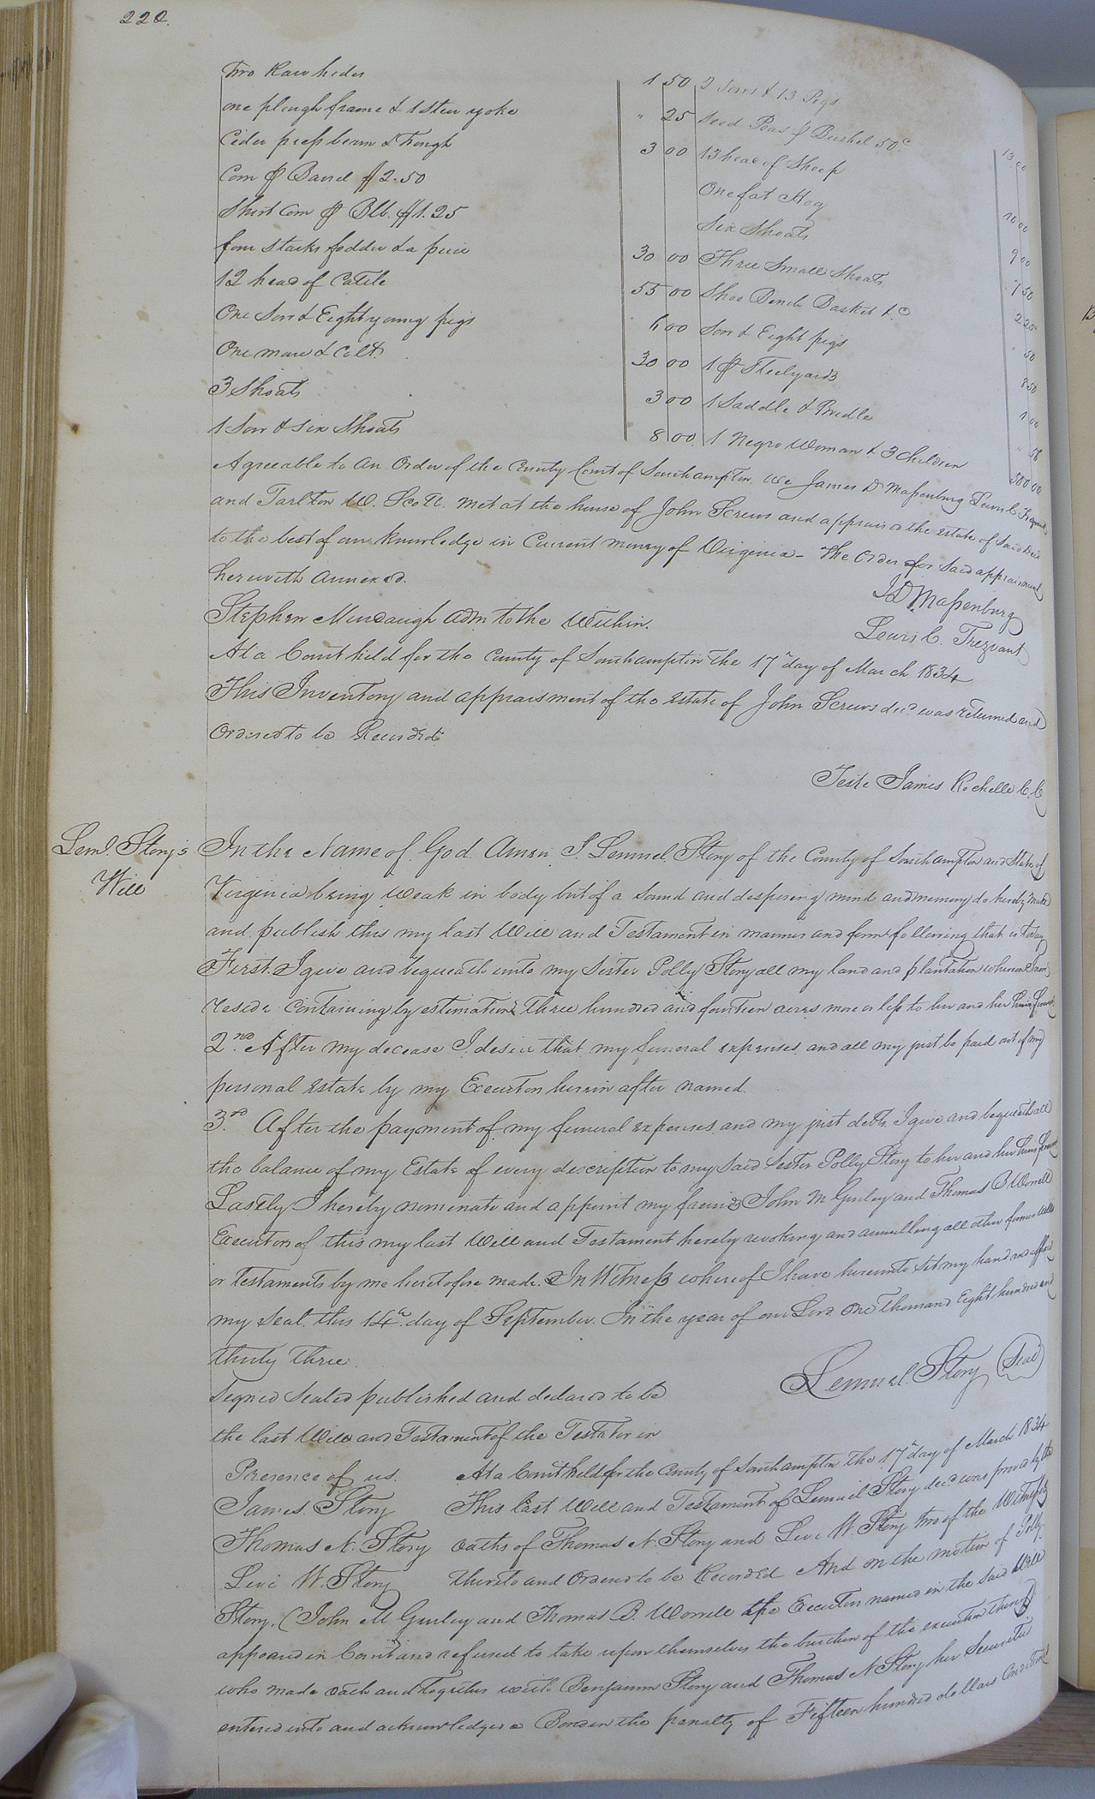 220.
Two Raw hides 1 50
one plough frame & 1 Steer yoke " 25
Cider press beam & Trough 3 00
Corn ⅌ Barrel $2.50
Short Corn ⅌ Blb. $1.25
four stacks fodder & a piece 30 00
12 head of Cattle 55 00
One Sow & Eight young pigs 6 00
One mare & Colt 30 00
3 Shoats 3 00
1 Sow & six Shoats 8 00
2 Sows & 13 Pigs 13 00
Seed Peas ⅌ Bushel 50.c
13 head of Sheep
One fat Hog
Six Shoats
Three Small Shoats
Shoe Bench Basket &c
Sow & Eight pigs
1 ⅌ Steelyards
1 Saddle & Bridle
1 Negro Woman & 3 Children 500 00
Agreeable to an Order of the County Court of Southampton We James D Massenburg Lewis C. Trezvant
and Tarlton W. Scott met at the house of John Screws and appraise the estate of said Decd
to the best of our knowledge in Current money of Virginia - The Order for said appraisment
herewith annexed.
J D Massenburg
Stephen Murdaugh Adm to the Within.
Lewis C. Trezvant
At a Court held for the County of Southampton the 17th day of March 1834
This Inventory and appraisment of the estate of John Screws decd was returned and
Ordered to be Recorded
Teste James Rochelle C.C
Leml. Story's
Will
In the Name of God Amen I Lemuel Story of the County of Southampton and State of
Virginia being weak in body but of a sound and desposing mind and memory do hereby make
and publish this my last Will and Testament in manner and form following that is to say
First. I give and bequeath unto my Sister Polly Story all my land and plantation whereon I now
reside Containing by estimation Three hundred and fourteen acres more or less to her and her heirs forever
2nd. After my decease I desire that my funeral expenses and all my just be paid out of my
personal estate by my Executors herein after named
3rd. After the payment of my funeral expenses and my just debts I give and bequeath all
the balance of my Estate of every description to my said Sister Polly Story to her and her heirs forever
Lastly I hereby nominate and appoint my friends John M Gurley and Thomas B Worrell
Executors of this my last Will and Testament hereby revoking and annulling all other former Wills
or Testaments by me heretofore made. In Witness whereof I have hereunto set my hand and affixed
my seal this 14th. day of September. In the year of our Lord One Thousand Eight hundred and
thirty three.
Lemuel Story (Seal)
Signed Sealed published and declared to be
the last Will and Testament of the Testator in
Presence of us.
James Story
Thomas N. Story
Levi W. Story
At a Court held for the County of Southampton the 17th day of March 1834
This last Will and Testament of Lemuel Story decd was proved by the
oaths of Thomas N. Story and Levi W Story two of the Witnesses
thereto and Ordered to be Recorded And on the motion of Polly
Story. (John M Gurley and Thomas B. Worrell the Executors named in the said Will
appeared in Court and refused to take upon themselves the burthen of the execution thereof)
who made oath and together with Benjamin Story and Thomas N Story her Securities
entered into and acknowledged a Bond in the penalty of Fifteen hundred dollars Conditioned